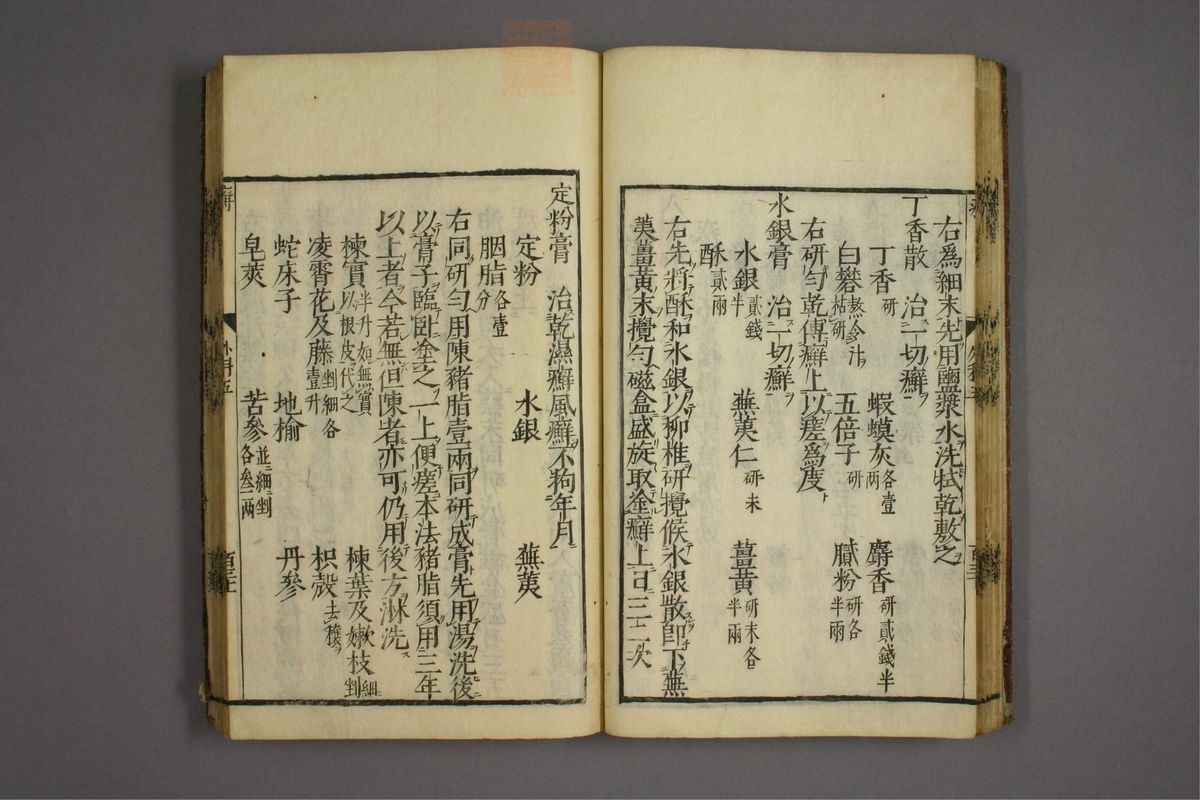 右爲細末先用鹽漿水洗拭乾敷之
丁香散　治一切癬
丁香研　蝦蟆灰各壹兩　麝香研貳錢半
白礬熬令汁枯研　五倍子研　膩粉研各半兩
右研勻乾傳癬上以瘥爲度
水銀膏　治一切癬
水銀貳錢半　蕪荑仁研末　薑黃研末各半兩
酥貳兩
右先將酥和水銀以柳椎研攪候水銀散即下蕪
荑薑黃末攪勻磁盒盛旋取塗癬上日三二次
定粉膏　治乾濕癬風癬不狗年月
定粉　水銀　蕪荑
胭脂各壹分
右同研勻用陳豬脂壹兩同研成膏先用湯洗後
以膏子臨臥塗之一上便瘥本法豬脂須用三年
以上者今若無但陳者亦可仍用後方淋洗
楝實半升如無實以根皮代之　楝葉及嫩枝細剉
凌霄花及藤剉細各壹升　枳殼去穰
蛇床子　地榆　丹參
皂莢　苦參並細剉各叁兩